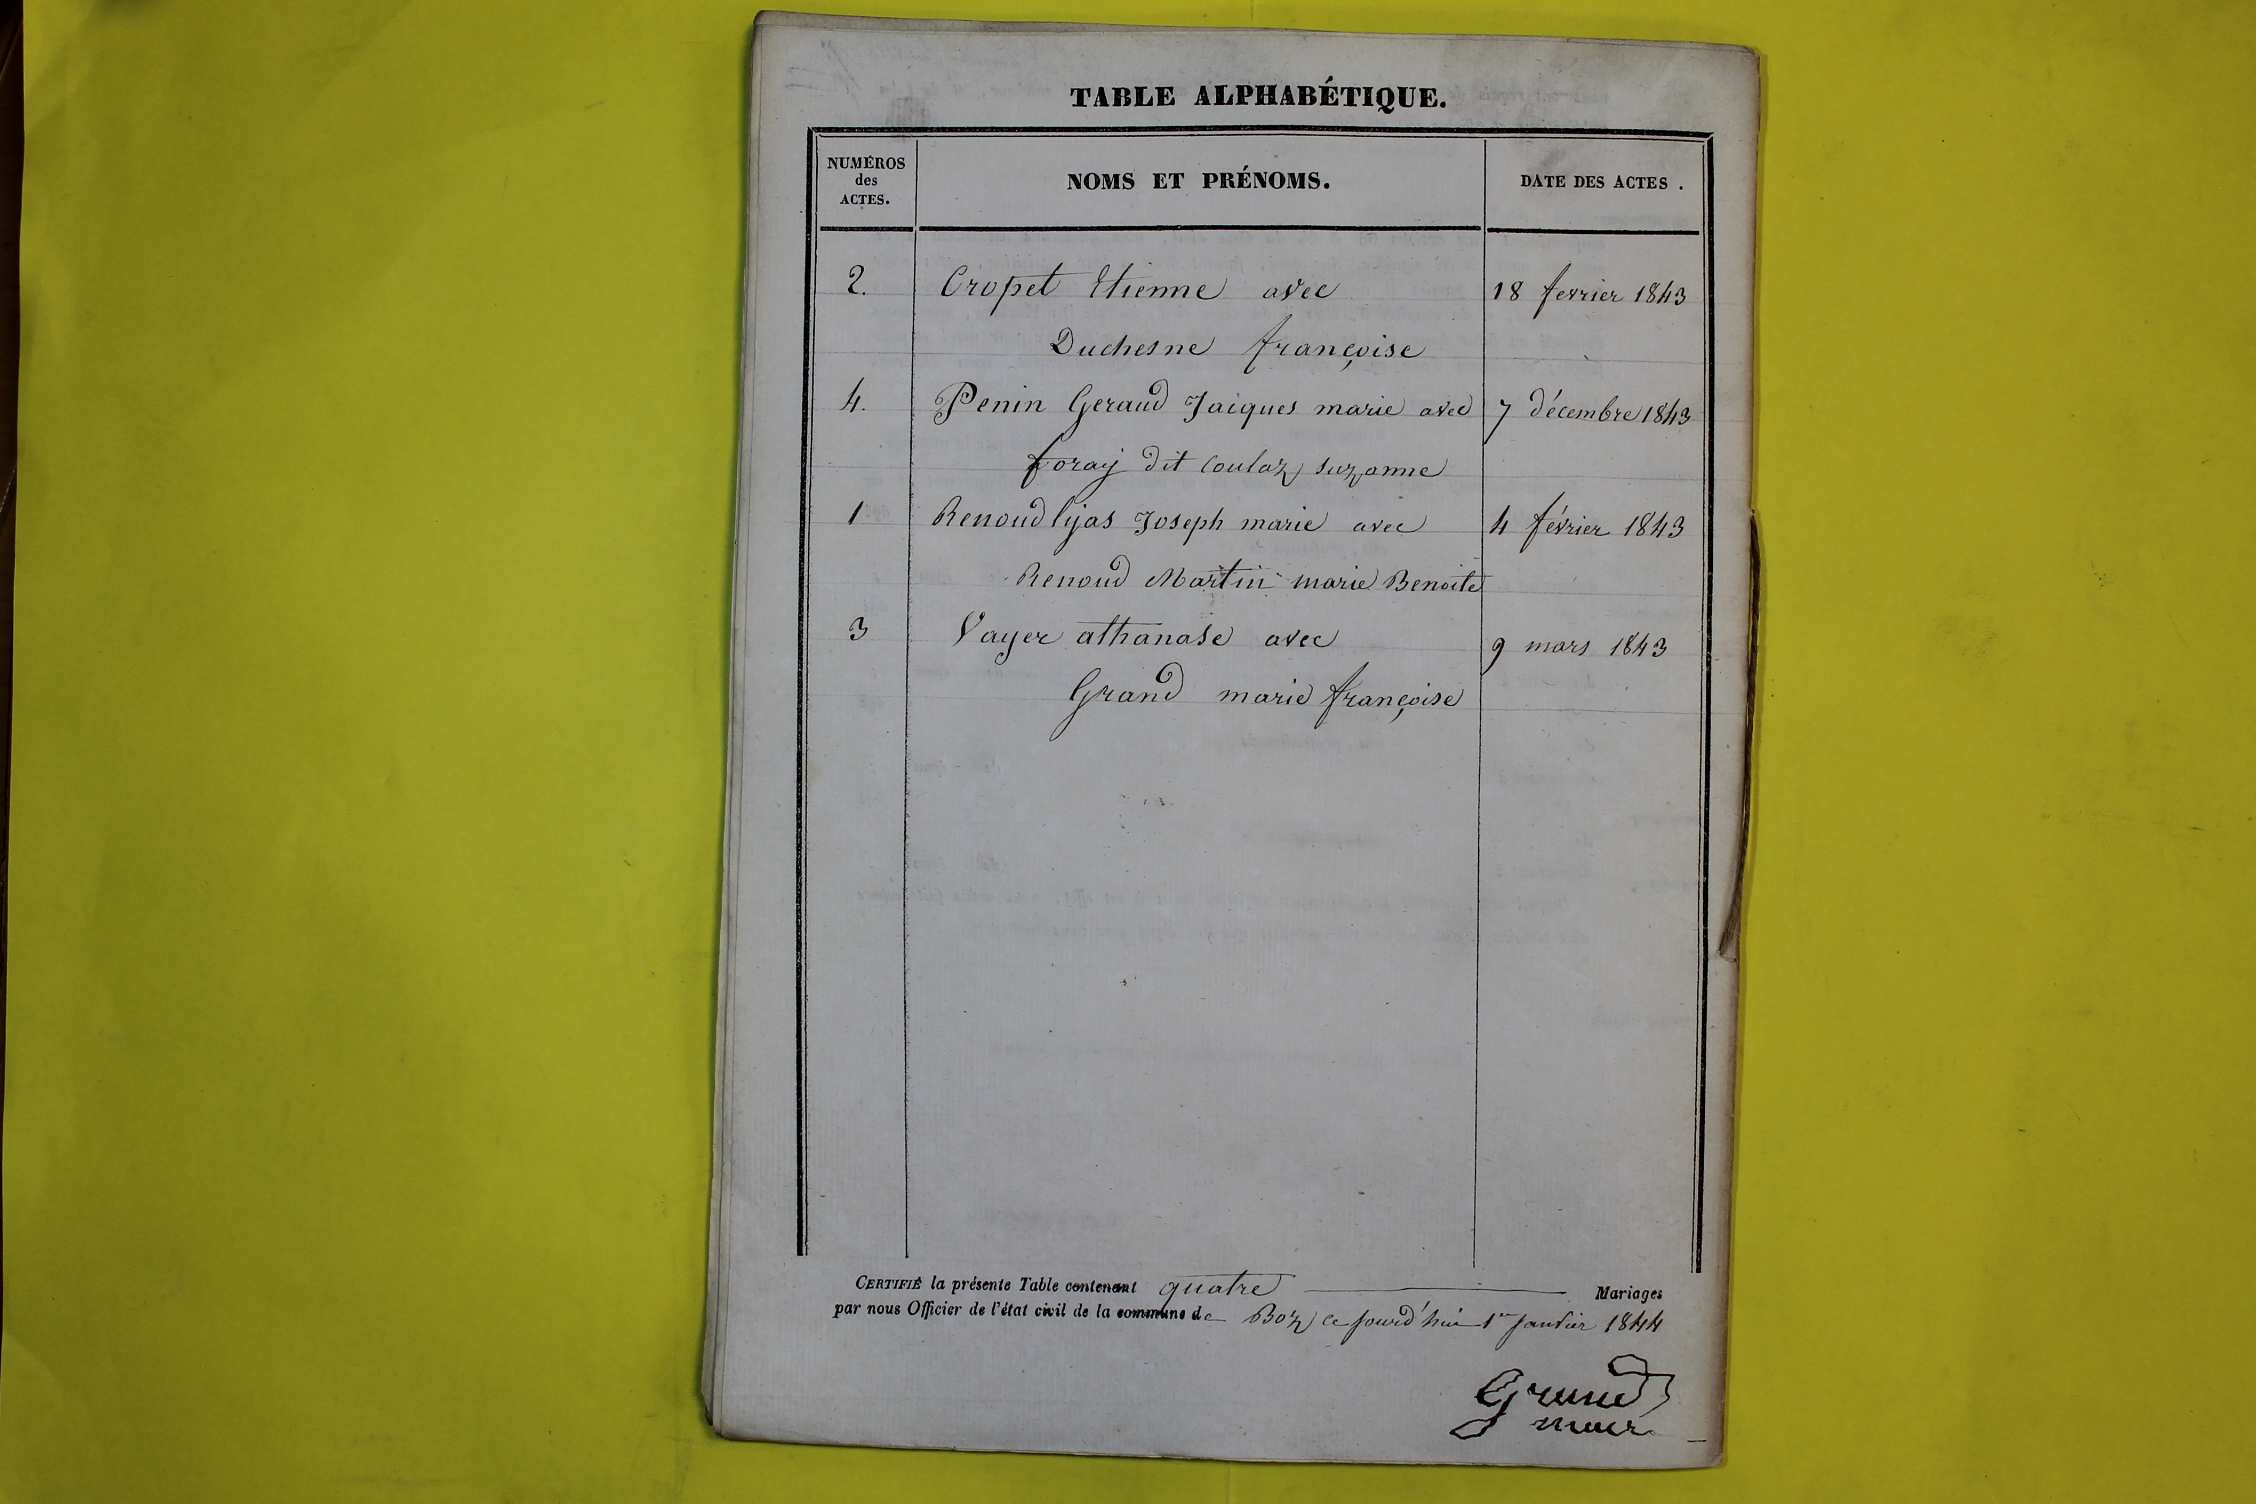 TABLE ALPHABÉTIQUE.
NUMÉROS des ACTES.
NOMS ET PRÉNOMS.
DATE DES ACTES .
2. Cropet Etienne avec 18 fevrier 1843
Duchesne françoise
4. Penin Geraud Jacques marie avec 7 décembre 1843
foray dit coulaz suzanne
1 Renoud lyas Joseph marie avec 4 février 1843
Renoud Martin marie Benoite
3 Vayer athanase avec 9 mars 1843
Grand marie françoise
CERTIFIÉ la présente Table contenant quatre Mariages
par nous Officier de l'état civil de la commune de Boz ce jourd'hui 1er janvier 1844
Grand
maire